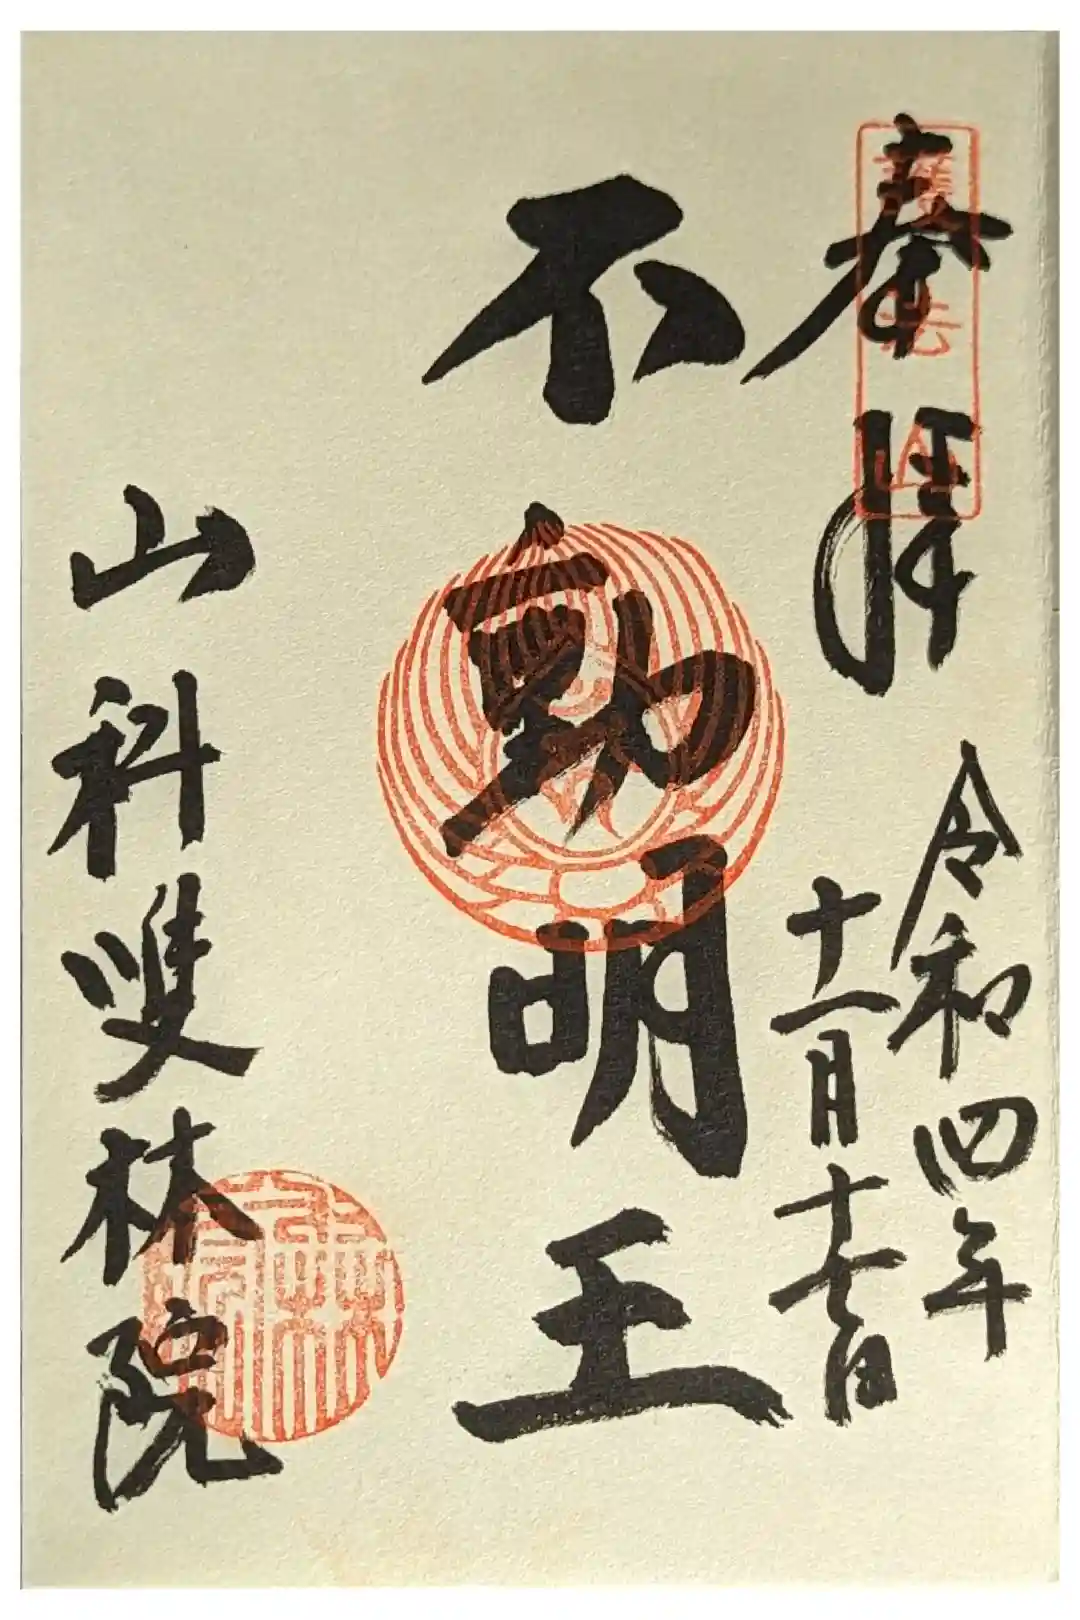 奉拝
護法山
令和四年
十一月十七日
不動明王
山科雙林院